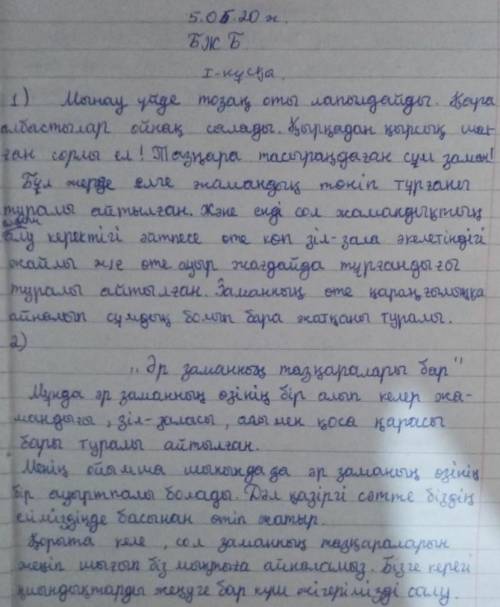 5.05.20 ж.
БЖБ
I-нұсқа.
1) Мынау үйде тозақ оты лапылдайды. Қара
албастылар ойнақ салады. Қырқадан қырсық шал-
ған сорлы ел! Тазқара тасыраңдаған сұм заман!
Бұл жерде елге жамандық төніп тұрғаны
туралы айтылған. Және енді сол жамандықтың
алдын
алу керектігі әйтпесе өте көп зіл-зала әкелетіндігі
жайлы ж/е өте ауыр жағдайда тұрғандығы
туралы айтылған. Заманның өте қараңғылыққа
айналып сұмдық болып бара жатқаны туралы.
2)
„Әр заманның тазқаралары бар"
Мұнда әр заманның өзінің бір алып келер жа-
мандығы, зіл-заласы, ағы мен қоса қарасы
бары туралы айтылған.
Менің ойымша шынында да әр заманың өзінің
бір ауыртпалы болады. Дәл қазіргі сәтте біздің
еліміздінде басынан өтіп жатыр.
Қорыта келе, сол заманның тазқараларын
жеңіп шығып біз мықтыға айналамыз. Бізге керегі
қиындықтарды жеңуге бар күш жігерімізді салу.